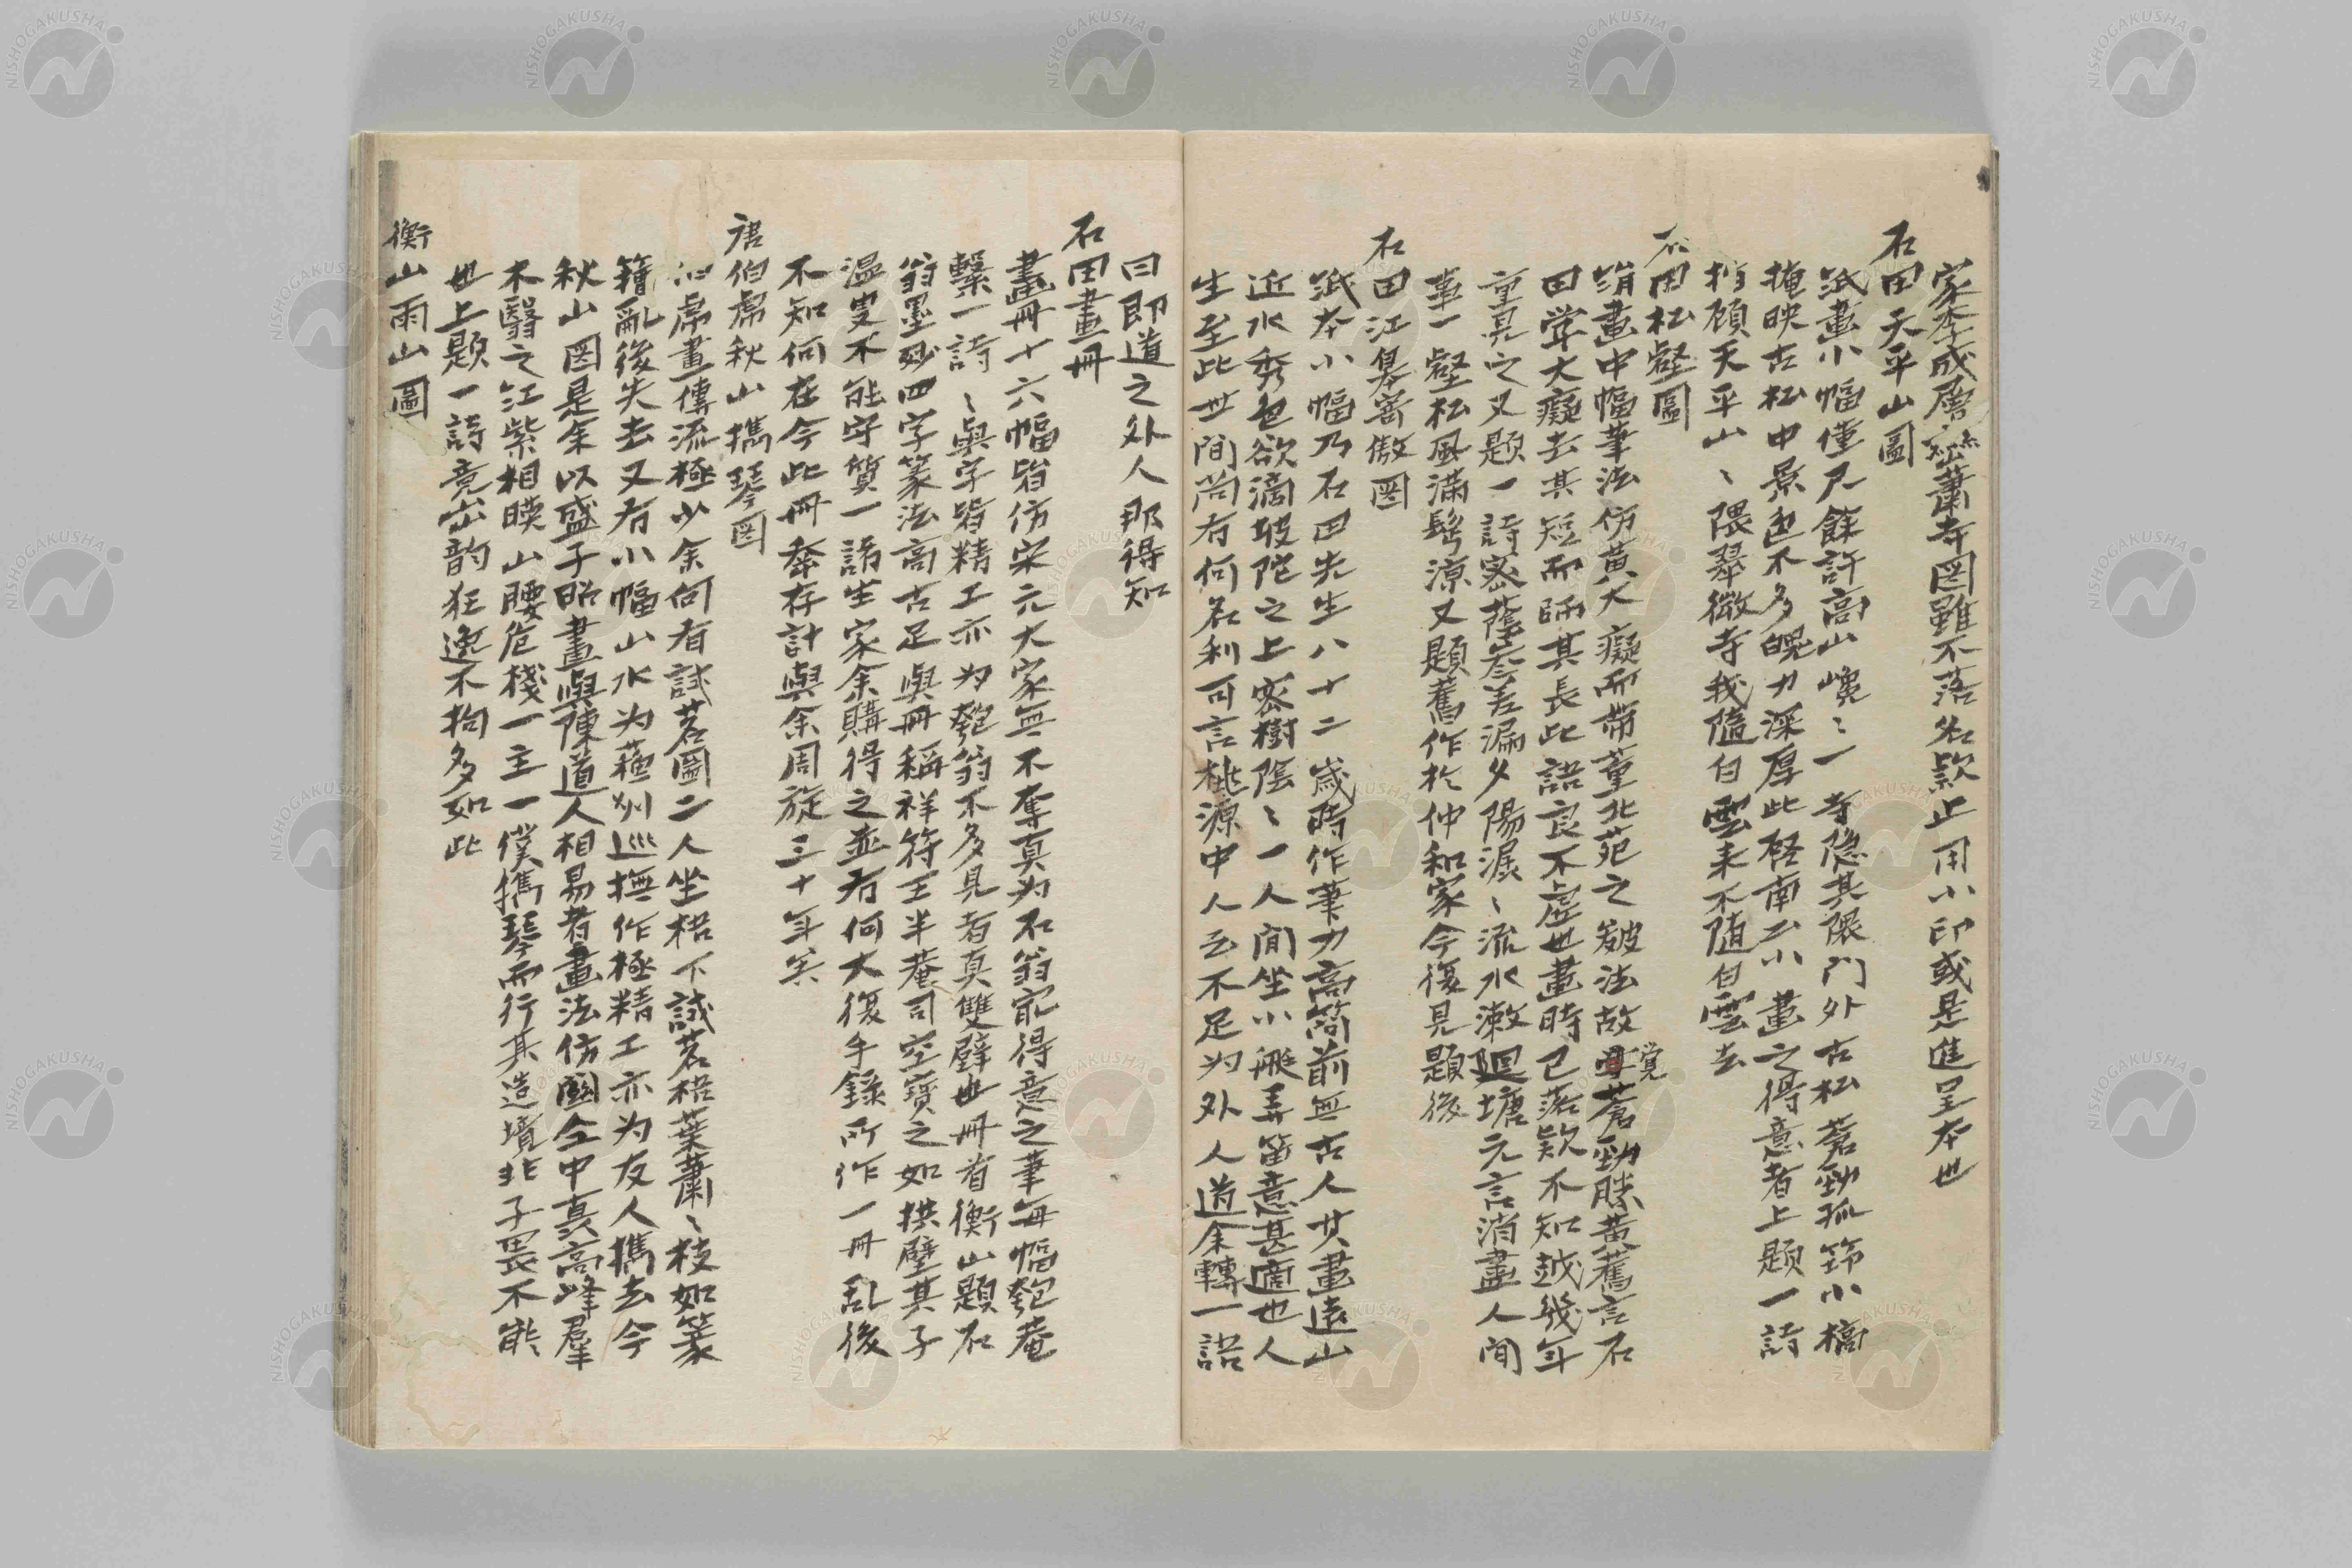 家李成層巒蕭寺図雖不落名款止用小印或是進呈本也
石田天平山圖
紙畫小幅僅尺餘許高山巉〻一寺隐其隈門外古松蒼勁孤筇小橋
掩映古松中景色不多魄力深厚此啓南公小畫之得意者上題一詩
指顧天平山〻隈翠微寺我隨白雲来不随白雲去
石田松壑圖
絹畫中幅筆法仿黄大癡而帶董北苑之皴法故覚蒼勁勝黄舊言石
田學大癡去其短而師其長此語良不虚也畫時已落欵不知越幾年
重見之又題一詩密蔭参差漏夕陽潺〻流水漱廻塘元言消盡人间
事一壑松風滿髩凉又題舊作扵仲和家今復見題後
石田江皋寄傲図
紙本小幅乃石田先生八十二歳時作筆力高簡前無古人其畫遠山
近水秀色欲滴坡陀之上密樹陰〻一人间坐小艇弄笛意甚適也人
生至此世间尚有何名利可言桃源中人云不足为外人道余轉一語
曰即道之外人那得知
石田畫冊
畫冊十六幅皆仿宋元大家無不奪真为石翁寂得意之筆每幅匏菴
繫一詩〻與字皆精工亦为匏翁不多見者真雙璧也冊首衡山題石
翁墨妙四字篆法高古足與冊稱祥符王半菴司空寶之如拱璧其子
温叟不能守質一諸生家余購得之並有何大復手錄所作一冊乱後
不知何在今此冊奉存計與余周旋三十年矣
唐伯虎秋山攜琴図
伯虎畫傳流極少余向有試茗圖二人坐梧下試茗梧葉蕭〻枝如篆
籕亂後失去又有小幅山水为蘓州巡撫作極精工亦为友人攜去今
秋山図是余以盛子昭畫與陳道人相易者畫法仿關仝中真高峰羣
木翳之江紫相暎山腰危棧一主一僕攜琴而行其造境非子畏不能
也上題一詩竟出韵狂逸不拘多如此
衡山雨山圖